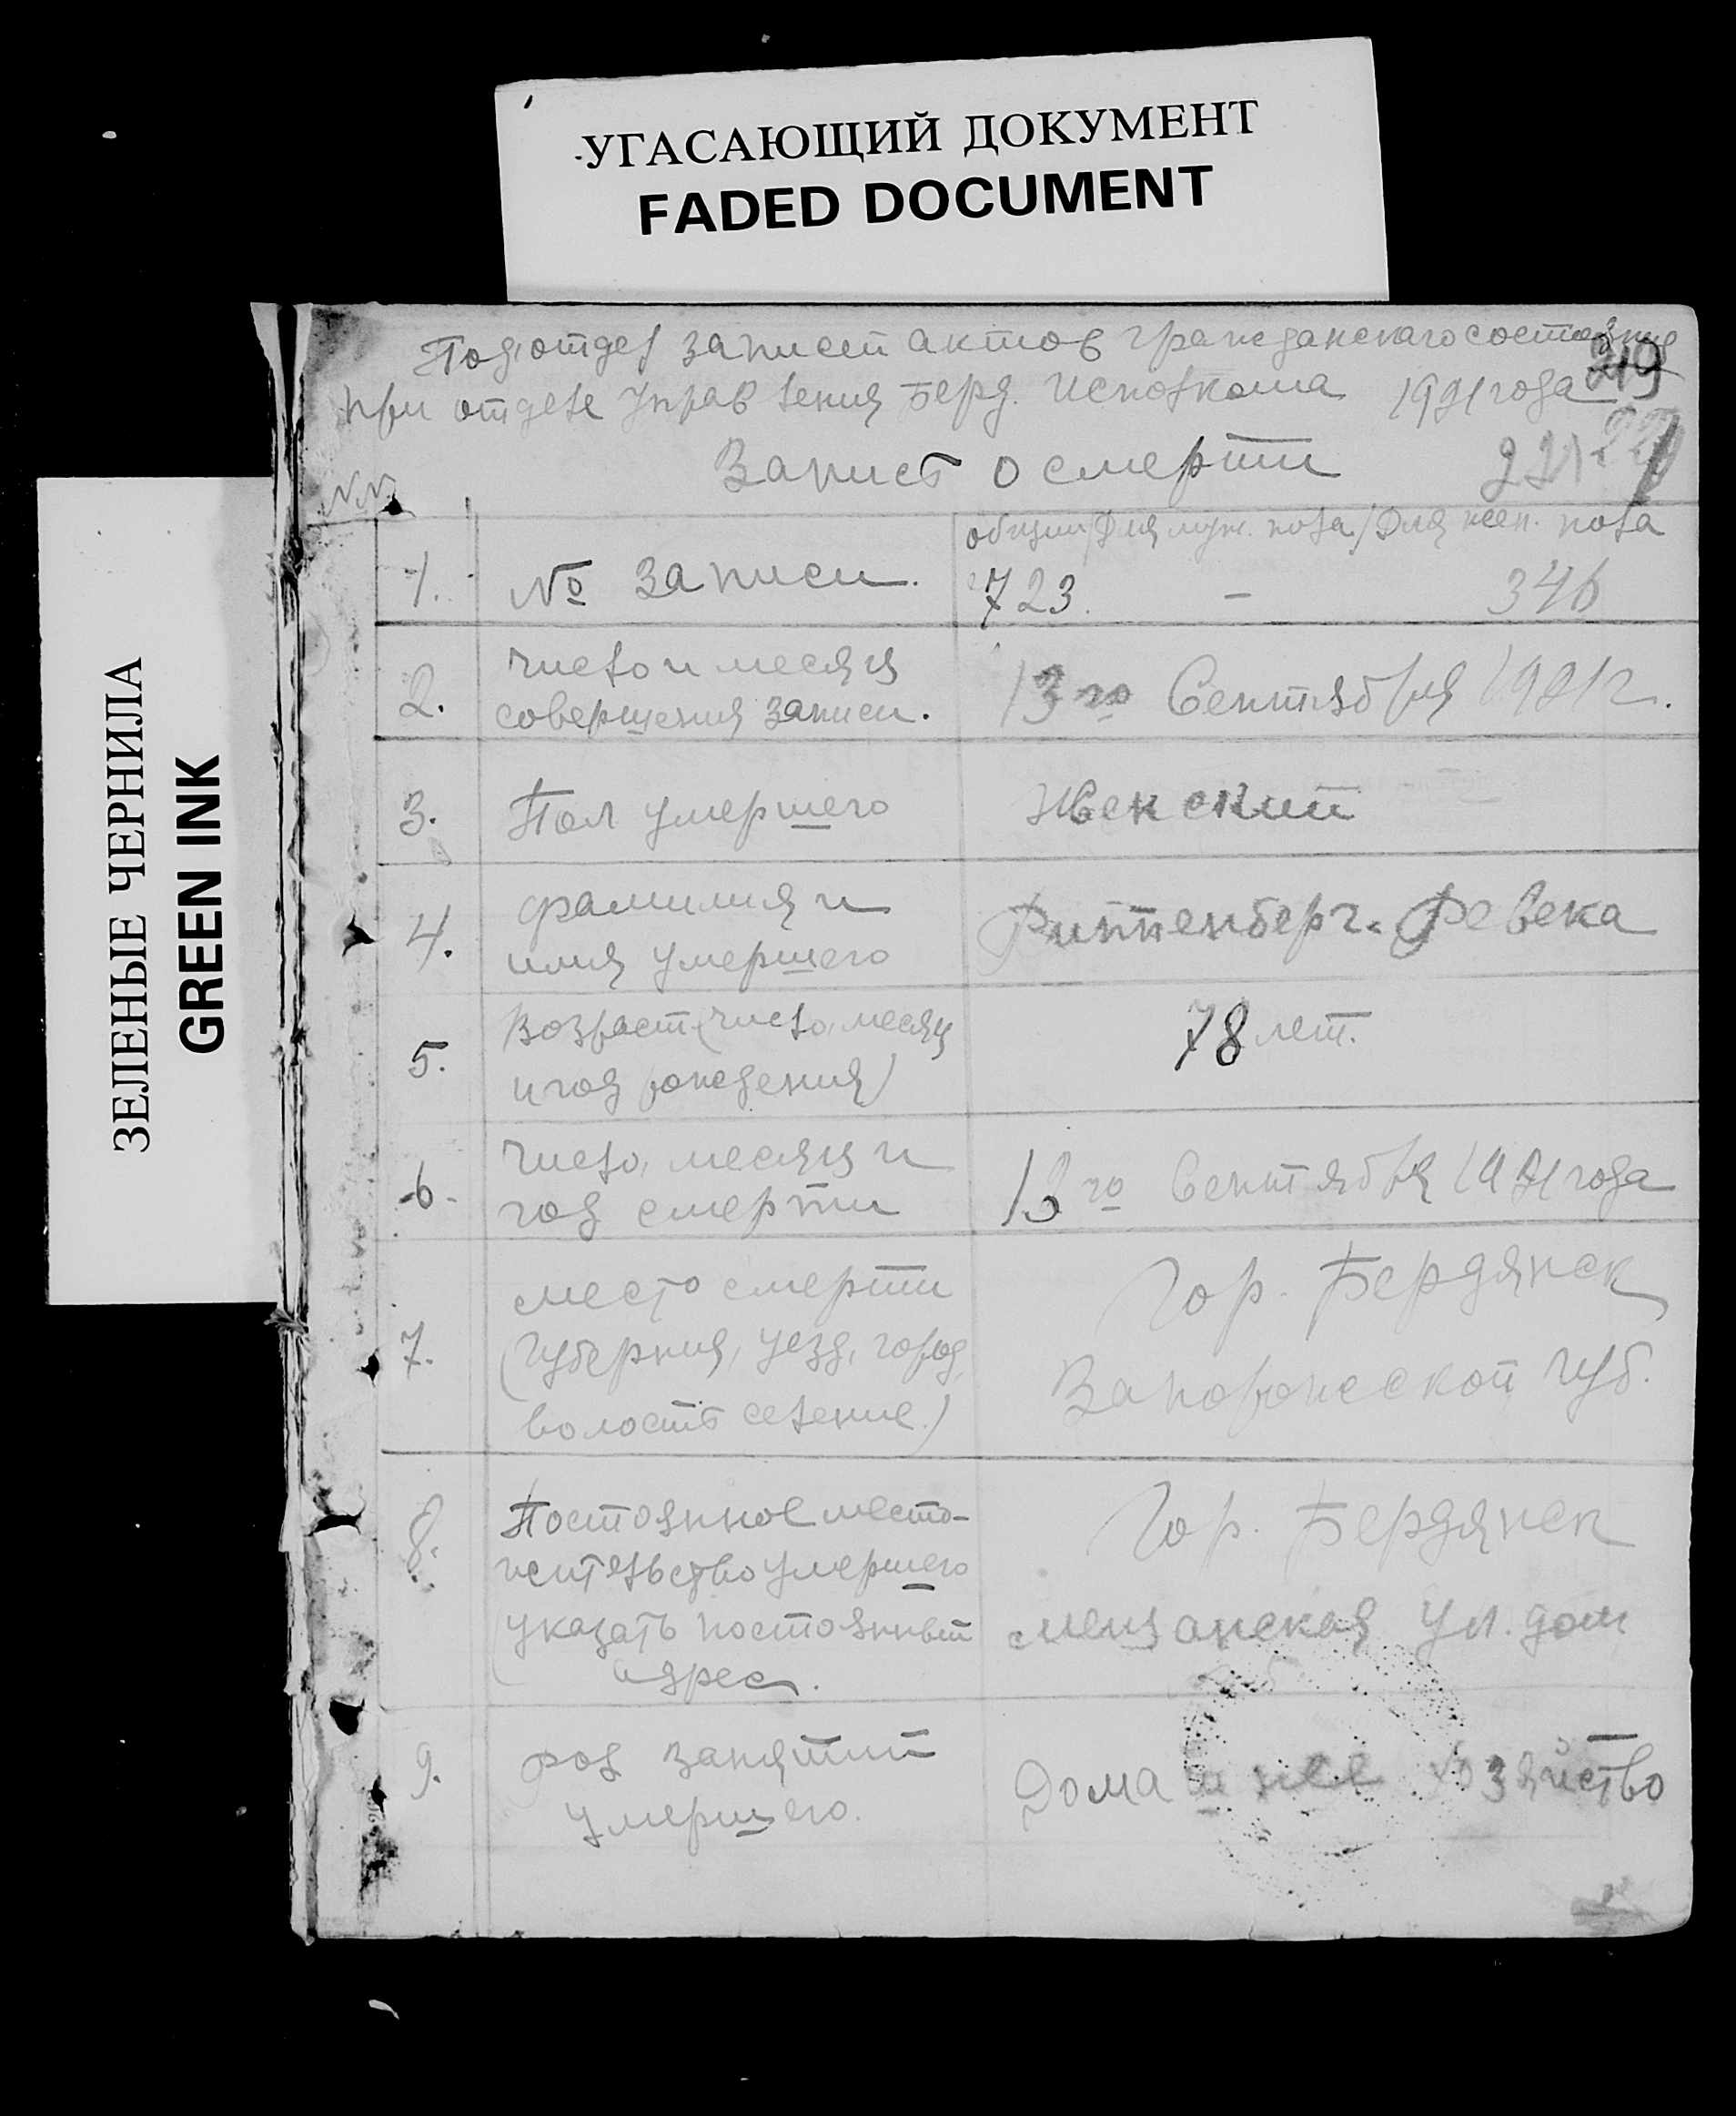 УГАСАЮЩИЙ ДОКУМЕНТ
FADED DOCUMENT
ЗЕЛЕНЫЕ ЧЕРНИЛА
GREEN INK
Подотдел записей актов гражданскаго состояния
при отделе Управления Берд. Исполкома 1921 года
219
Запись о смерти
221
№№
общий/Для муж. пола/Для жен. пола
1. № записи. 723. – 346
2. число и месяц
совершения записи. 13го Сентября 1921 г.
3. Пол умершего Женский
4. фамилия и
имя умершего Риттенберг. Ревека
5. Возраст (число, месяц
и год рождения) 78 лет.
6. число, месяц и
год смерти 13го Сентября 1921 года
7. место смерти
(губерния, уезд, город,
волость селение.)
Гор. Бердянск
Запорожской губ.
8. Постоянное место-
жительство умершего
указать постоянный
адрес.
Гор. Бердянск
мещанская ул. дом
9. род занятий
умершего.
Домашнее хозяйство